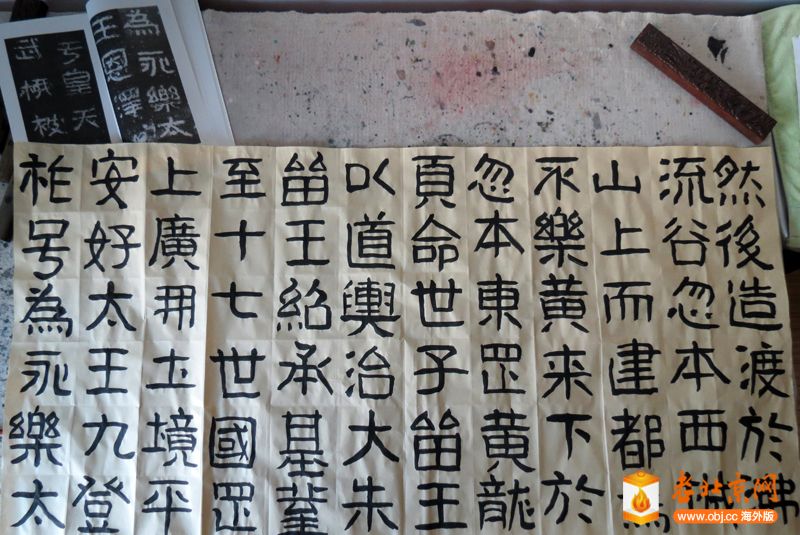 然後造渡於沸
流谷忽本西城
山上而建都焉
不樂黄来下於
忽本東罡黄龍
頁命世子畱王
以道輿治大朱
畱王紹承基輩
至十七世國罡
上廣開土境平
安好太王九登
祚号為永樂太
為永樂太
王恩澤
于皇天
武
老北京网
www.obj.cc 海外版